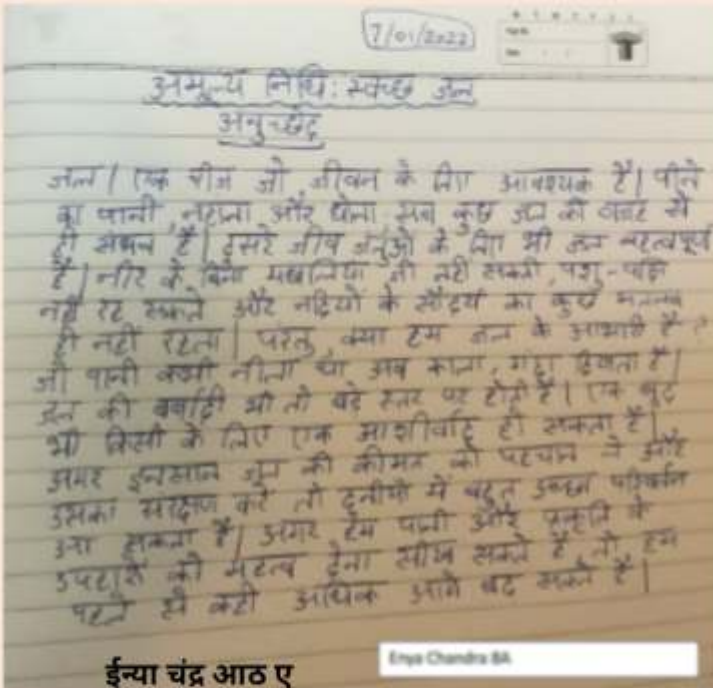 7/01/2022
अमूल्य निधि: स्वच्छ जल
अनुच्छेद
जल। एक चीज जो जीवन के लिए आवश्यक है। पीने
का पानी, नहाना और धोना सब कुछ जल की वजह से
ही संभव है। दूसरे जीव जंतुओं के लिए भी जल महत्वपूर्ण
है। नीर के बिना मछलियां जी नहीं सकती, पशु-पक्षि
नहीं रह सकते और नदियों के सौंदर्य का कुछ मतलब
ही नहीं रहता। परंतु, क्या हम जल के आभारी है?
जो पानी कभी नीला था अब काला, गंदा दिखता है।
जल की बर्बादी भी तो बड़े स्तर पर होती है। एक बूंद
भी किसी के लिए एक आशीर्वाद हो सकता है।
अगर इनसान जल की कीमत को पहचान ले और
उसका संरक्षण करे तो दुनीया में बहुत अच्छा परिवर्तन
आ सकता है। अगर हम पानी और प्रकृति के
उपहारों को महत्व देना सीख सकते है, तो हम
पहले से कही अधिक आगे बढ़ सकते है।
ईन्या चंद्र आठ ए
Enya Chandra 8A